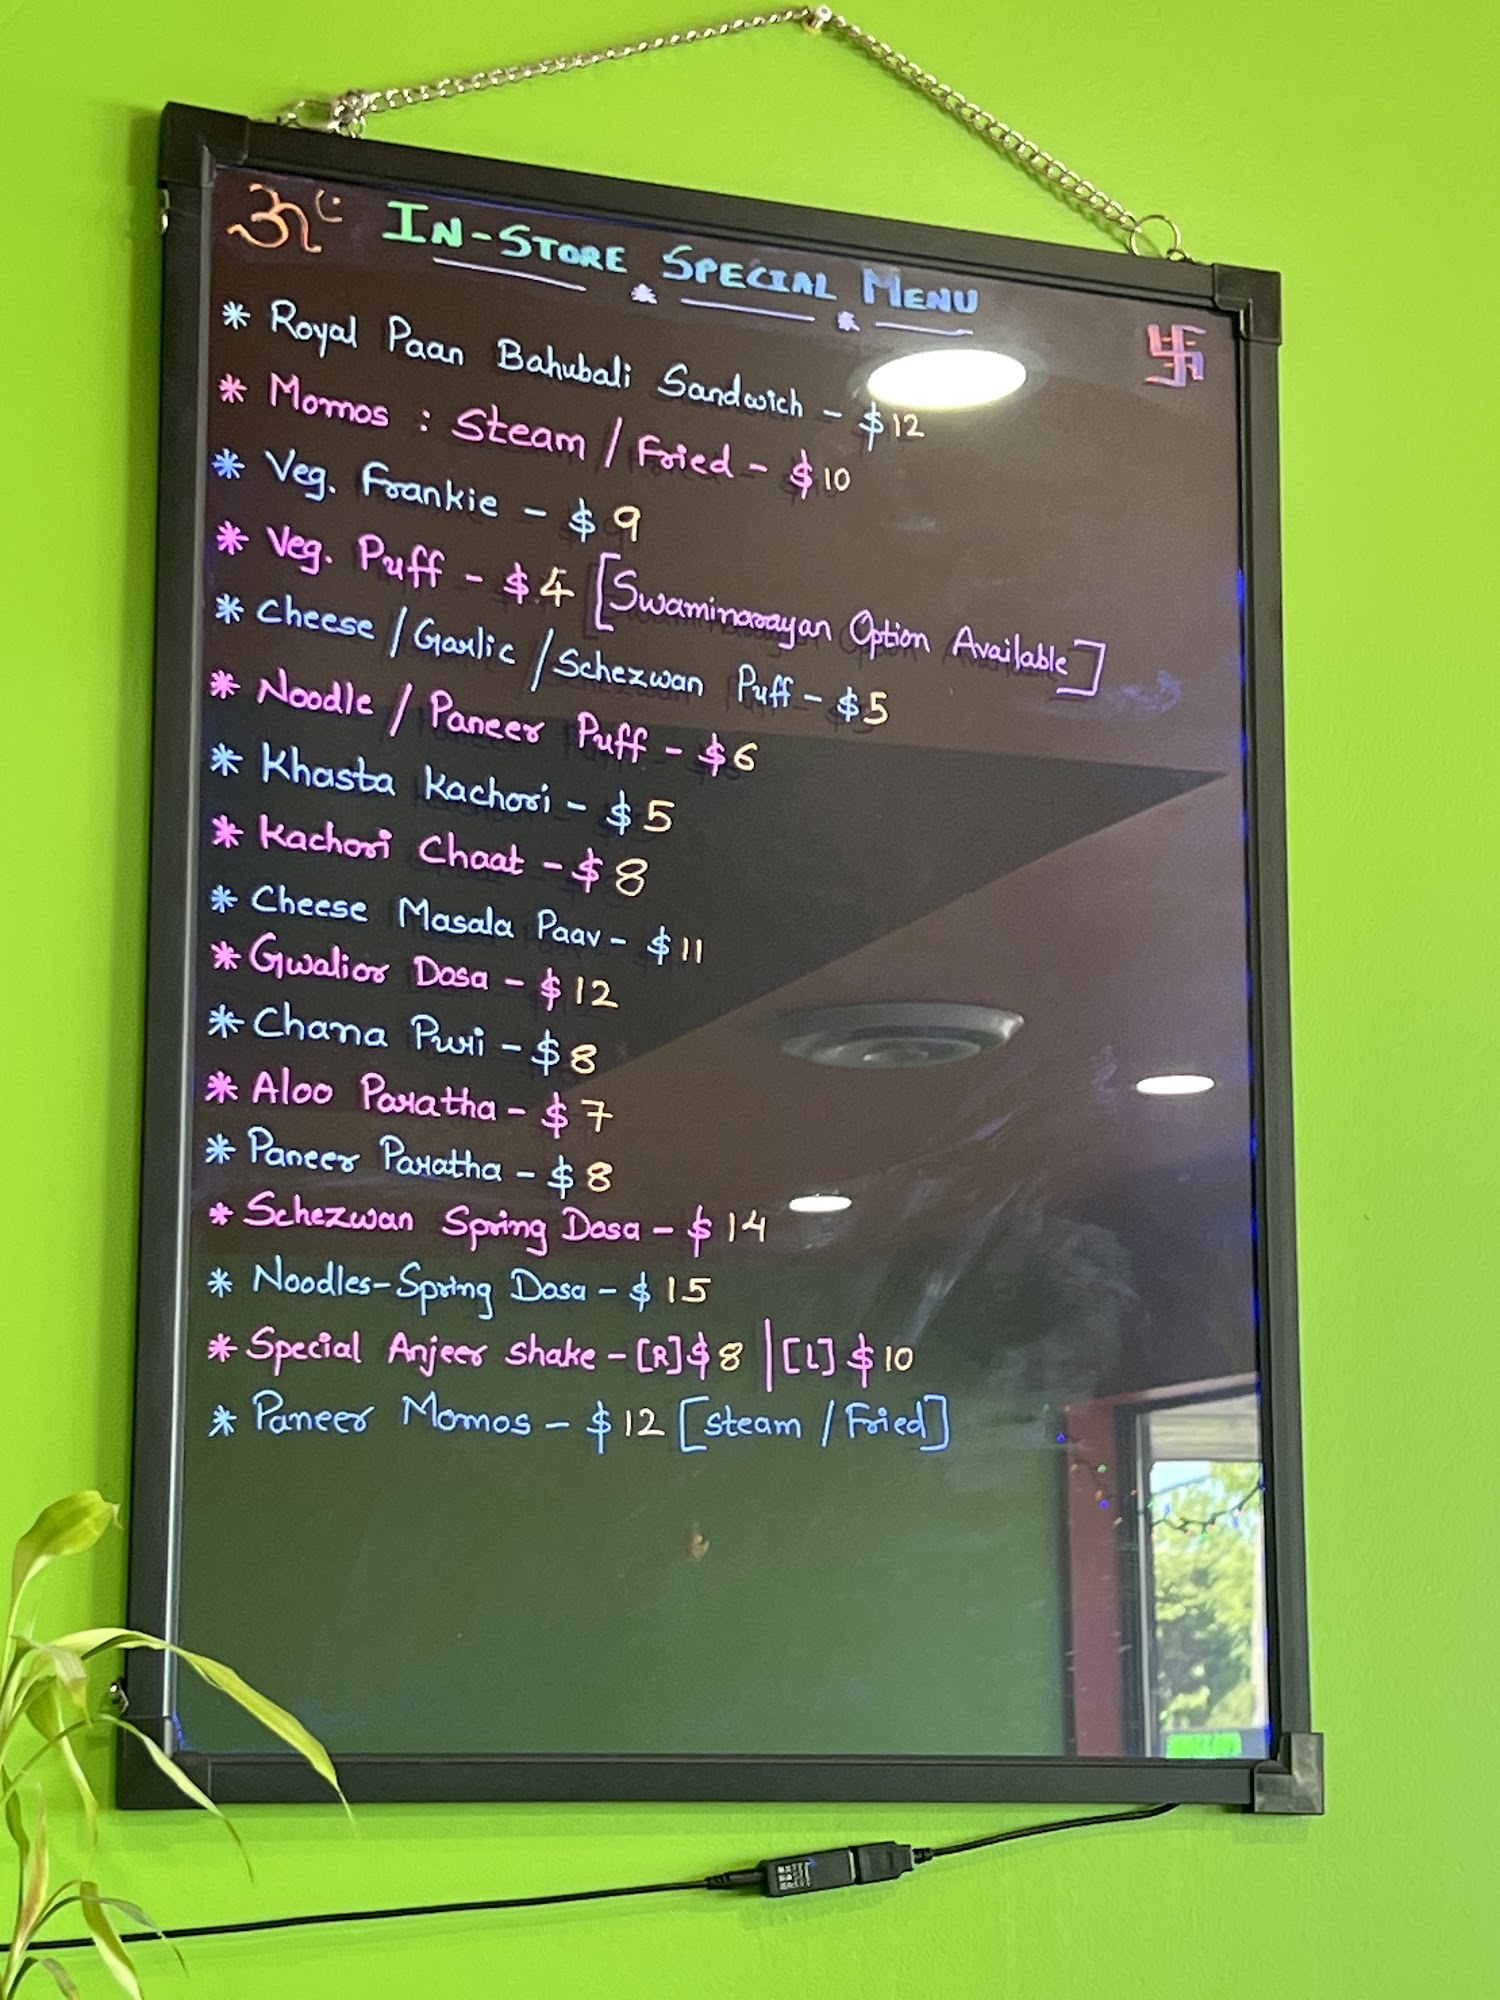 ॐ IN-STORE SPECIAL MENU
* Royal Paan Bahubali Sandwich - $12
* Momos : Steam / Fried - $10
* Veg. Frankie - $9
* Veg. Puff - $4 [Swaminarayan Option Available]
* Cheese / Garlic / Schezwan Puff - $5
* Noodle / Paneer Puff - $6
* Khasta Kachori - $5
* Kachori Chaat - $8
* Cheese Masala Paav - $11
* Gwalior Dosa - $12
* Chana Puri - $8
* Aloo Paratha - $7
* Paneer Paratha - $8
* Schezwan Spring Dosa - $14
* Noodles-Spring Dosa - $15
* Special Anjeer shake - [R] $8 | [L] $10
* Paneer Momos - $12 [Steam / Fried]